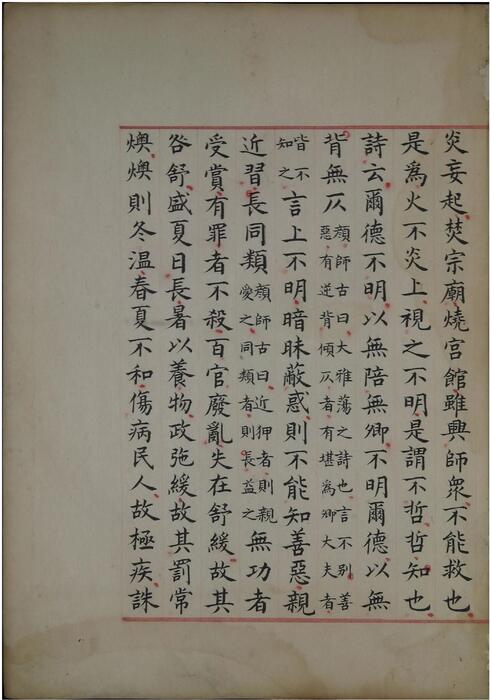 炎妄起焚宗廟燒宮館雖興師衆不能救也
是爲火不炎上視之不明是謂不哲哲知也
詩云爾德不明以無陪無卿不明爾德以無
背無仄顔師古曰大雅蕩之詩也言不别善惡有逆背傾仄者有堪爲卿大夫者
皆不知之言上不明暗昧蔽惑則不能知善惡親
近習長同類顔師古曰近狎者則親愛之同類者則長益之無功者
受賞有罪者不殺百官廢亂失在舒緩故其
咎舒盛夏日長暑以養物政弛緩故其罰常
燠燠則冬温春夏不和傷病民人故極疾誅